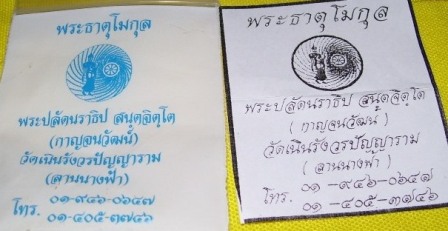 พระธาตุโมกุล
พระปลัดนราธิป สนฺตจิตฺโต
(กาญจนวัฒน์)
วัดเนินรังวรปัญญาราม
(ลานนางฟ้า)
โทร. ๐๑-๙๔๖-๐๖๔๗
๐๑-๔๐๕-๓๗๔๖
พระธาตุโมกุล
พระปลัดนราธิป สนฺตจิตฺโต
(กาญจนวัฒน์)
วัดเนินรังวรปัญญาราม
(ลานนางฟ้า)
โทร. ๐๑ -๙๔๖ -๐๖๔๗
๐๑ -๔๐๕ -๓๗๔๖